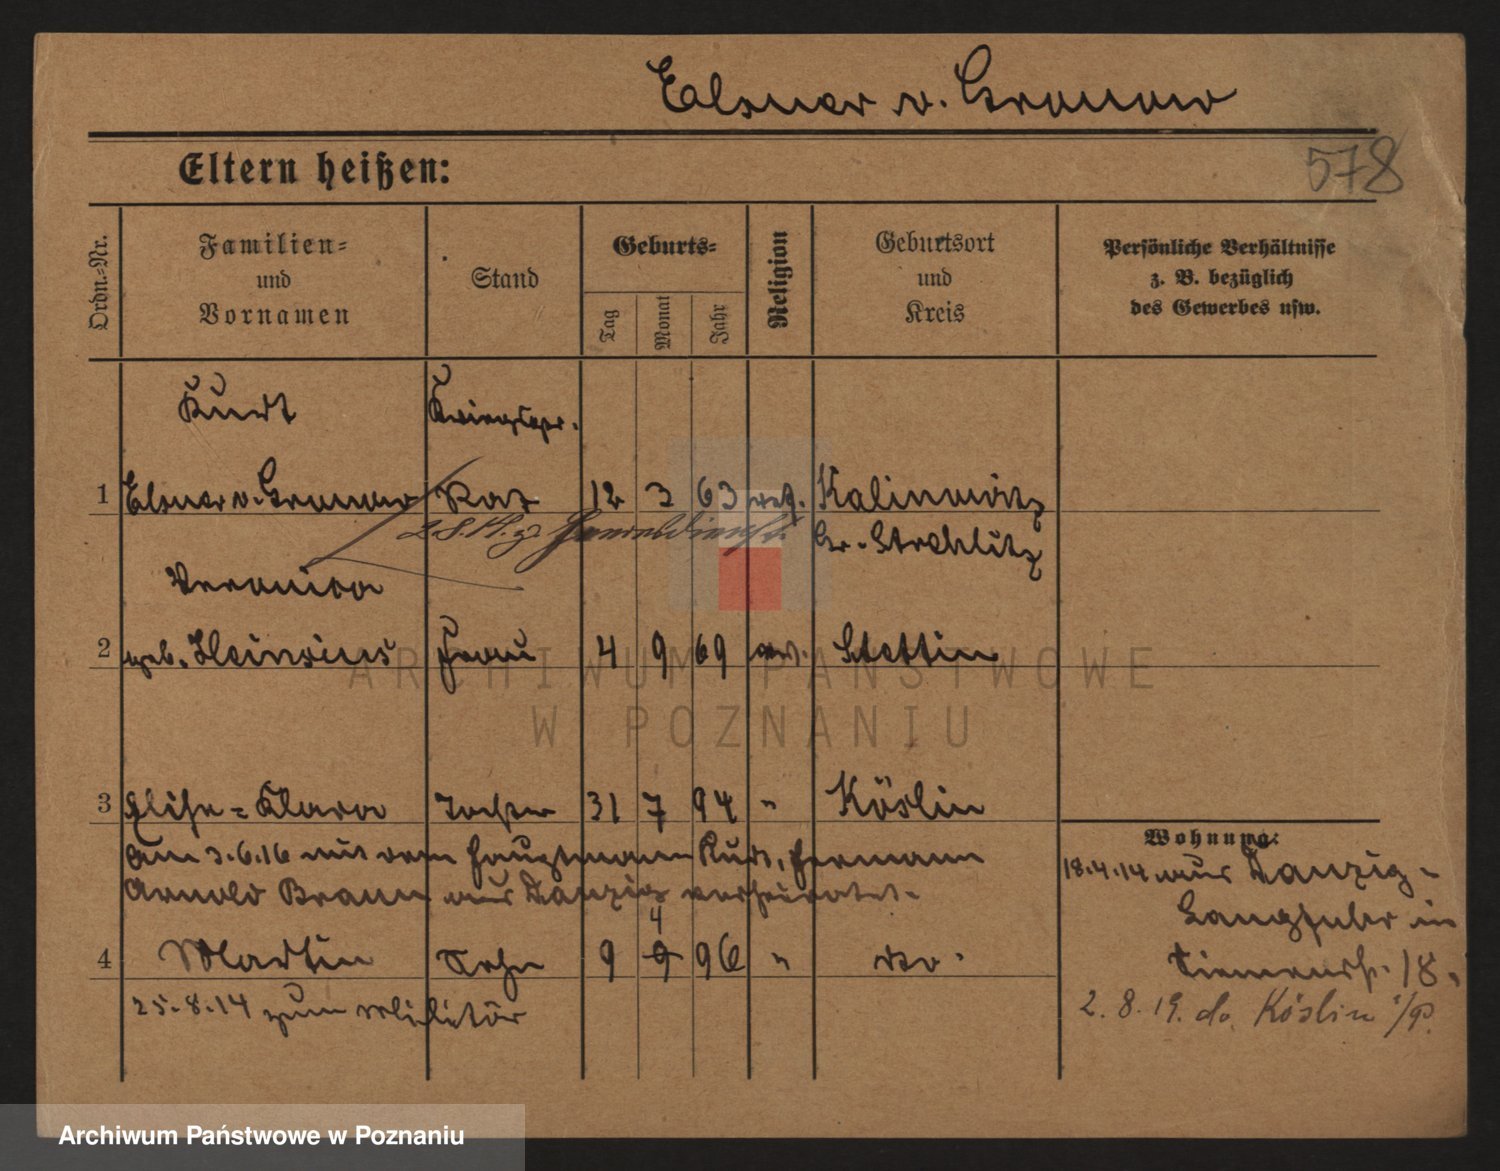 Elsner v. Gronow
578
Eltern heißen:
Ordn.-Nr.
Familien-
und
Vornamen
Stand
Geburts-
Tag
Monat
Jahr
Religion
Geburtsort
und
Kreis
Persönliche Verhältnisse
z. B. bezüglich
des Gewerbes usw.
Kurt Kriegsger.
1 Elsner v. Gronow Rat 12 3 63 Kalinowitz
z. Heeresdienst Gr. Strehlitz
Veronika
2 geb. Heinrius Frau 4 9 69 ev. Stettin
3 Elise-Klara Tochter 31 7 94 " Köslin
Am 3.6.16 mit dem Hauptmann Kurt, Hermann
Arnold Braun aus Danzig verheiratet.
4
4 Martin Sohn 9 9 96 " do.
25.8.14 zum Militär
Wohnung:
18.4.14 aus Danzig-
Langfuhr in
18.
2.8.19. do. Köslin i/P.
ARCHIWUM PAŃSTWOWE
W POZNANIU
Archiwum Państwowe w Poznaniu